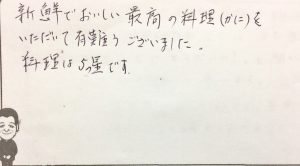 新鮮でおいしい最高の料理(かに)を
いただいて有難うございました。
料理は5つ星です